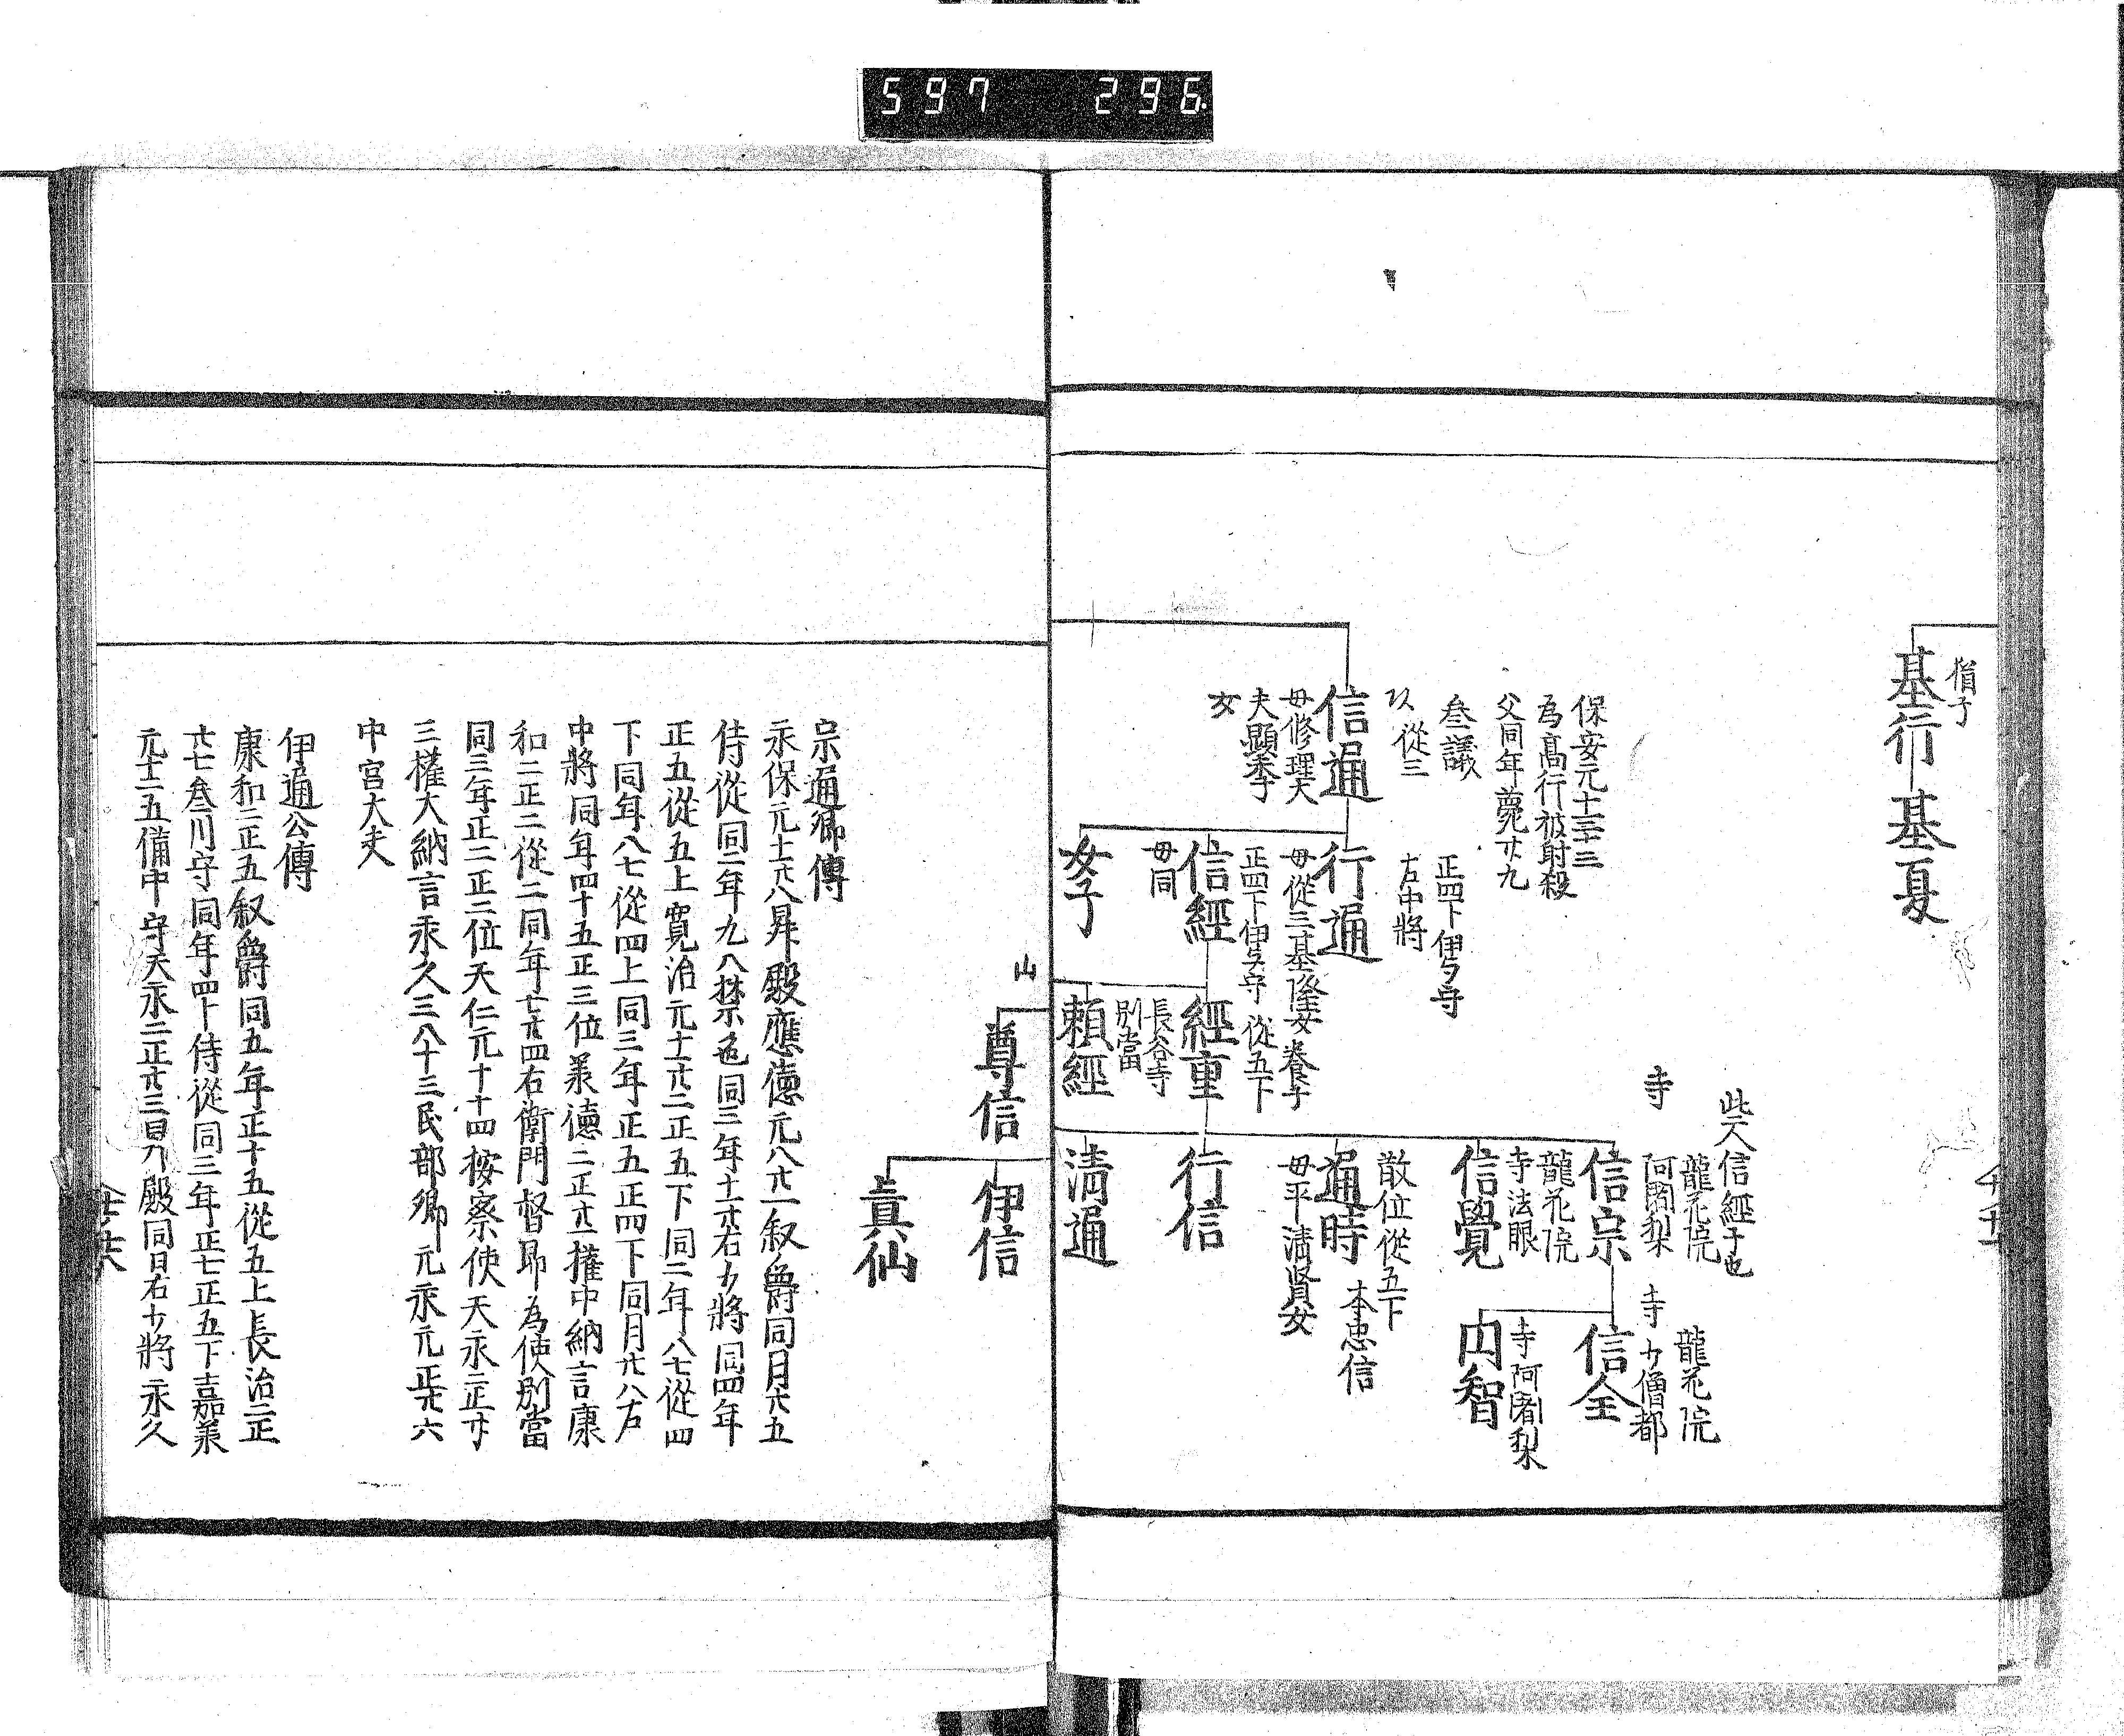 597 296
猶子
基行
基夏
保安元十二十三
為髙行被射殺
父同年薨廿九
叅議
從三
信通
母修理大
夫顯季
女
正四下伊与守
右中將
行通
母從三基隆女 養子
正四下伊与守 從五下
信經
母同
女子
經重
長谷寺
別當
頼經
此人信經子也
寺
龍花院
阿闍梨
信宗
龍花院
寺法眼
信覺
龍花院
寺 少僧都
信全
寺阿闍梨
円智
散位從五下
本忠信
通時
母平清賢女
行信
清通
山
尊信
伊信
真仙
宗通卿傳
永保元十二廿八昇殿應德元八廿一叙爵同月廿五
侍從同二年九八禁色同三年十一廿右少將同四年
正五從五上寛治元十二廿二正五下同二年八七從四
下同年八七從四上同三年正五正四下同月廿八右
中將同年四十五正三位兼德二正廿權中納言康
和二正二從二同年七廿四右衛門督即為使別當
同三年正二正二位天仁元十十四按察使天永二正廿
三權大納言永久三八十三民部卿元永元正廿六
中宮大夫
伊通公傳
康和二正五叙爵同五年正十五從五上長治二正
廿七叅川守同年四十侍從同三年正七正五下嘉兼
元十二五備中守天永二正廿三昇殿同日右少將永久